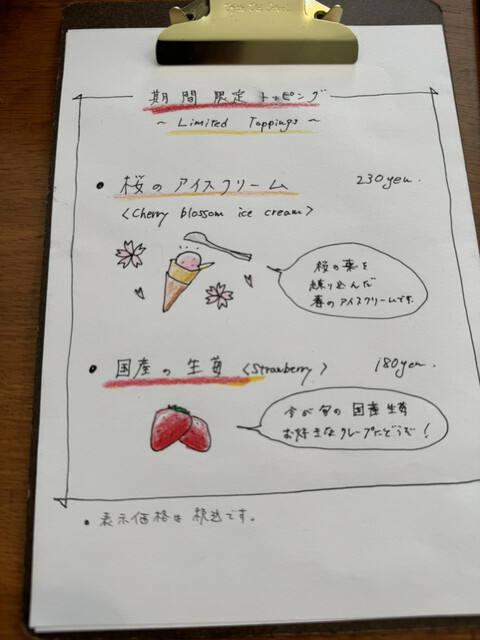 期間限定トッピング
~ Limited Tappings ~
• 桜のアイスクリーム 230yen.
<Cherry blossom ice cream>
桜の葉を
練り込んだ
春のアイスクリームです。
• 国産の生苺 <Strawberry> 180yen.
今が旬の国産生苺
お好きなクレープにどうぞ!
• 表示価格は税込です。